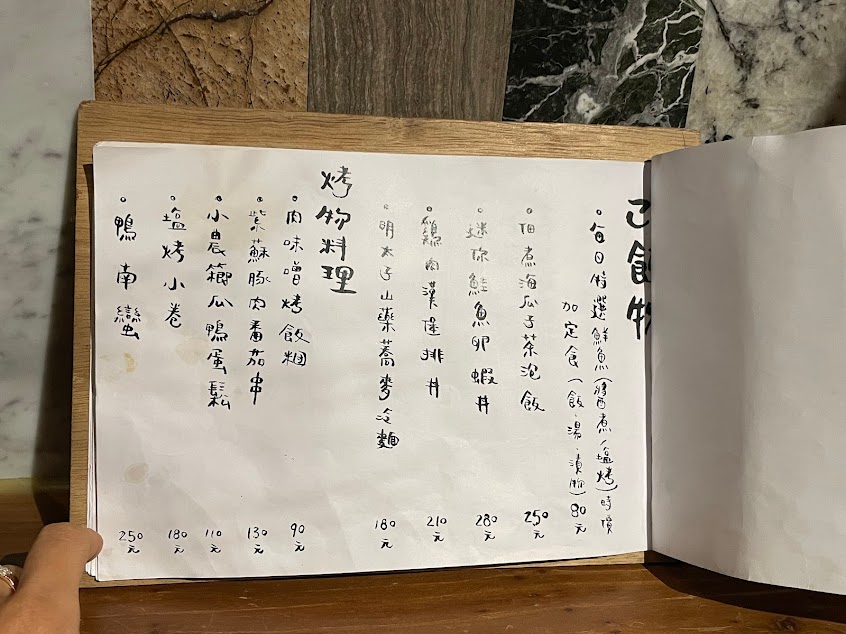 ご飯物
。每日特選鮮魚(醬煮/塩烤)時價
加定食(飯.湯.漬物)80元
。佃煮海瓜子茶泡飯 250元
。迷你鮭魚卵蝦丼 280元
。鷄肉漢堡排丼 210元
。明太子山藥蕎麥冷麵 180元
烤物料理
。肉味噌烤飯糰 90元
。紫蘇豚肉番茄串 130元
。小農節瓜鴨蛋鬆 110元
。塩烤小卷 180元
。鴨南蠻 250元